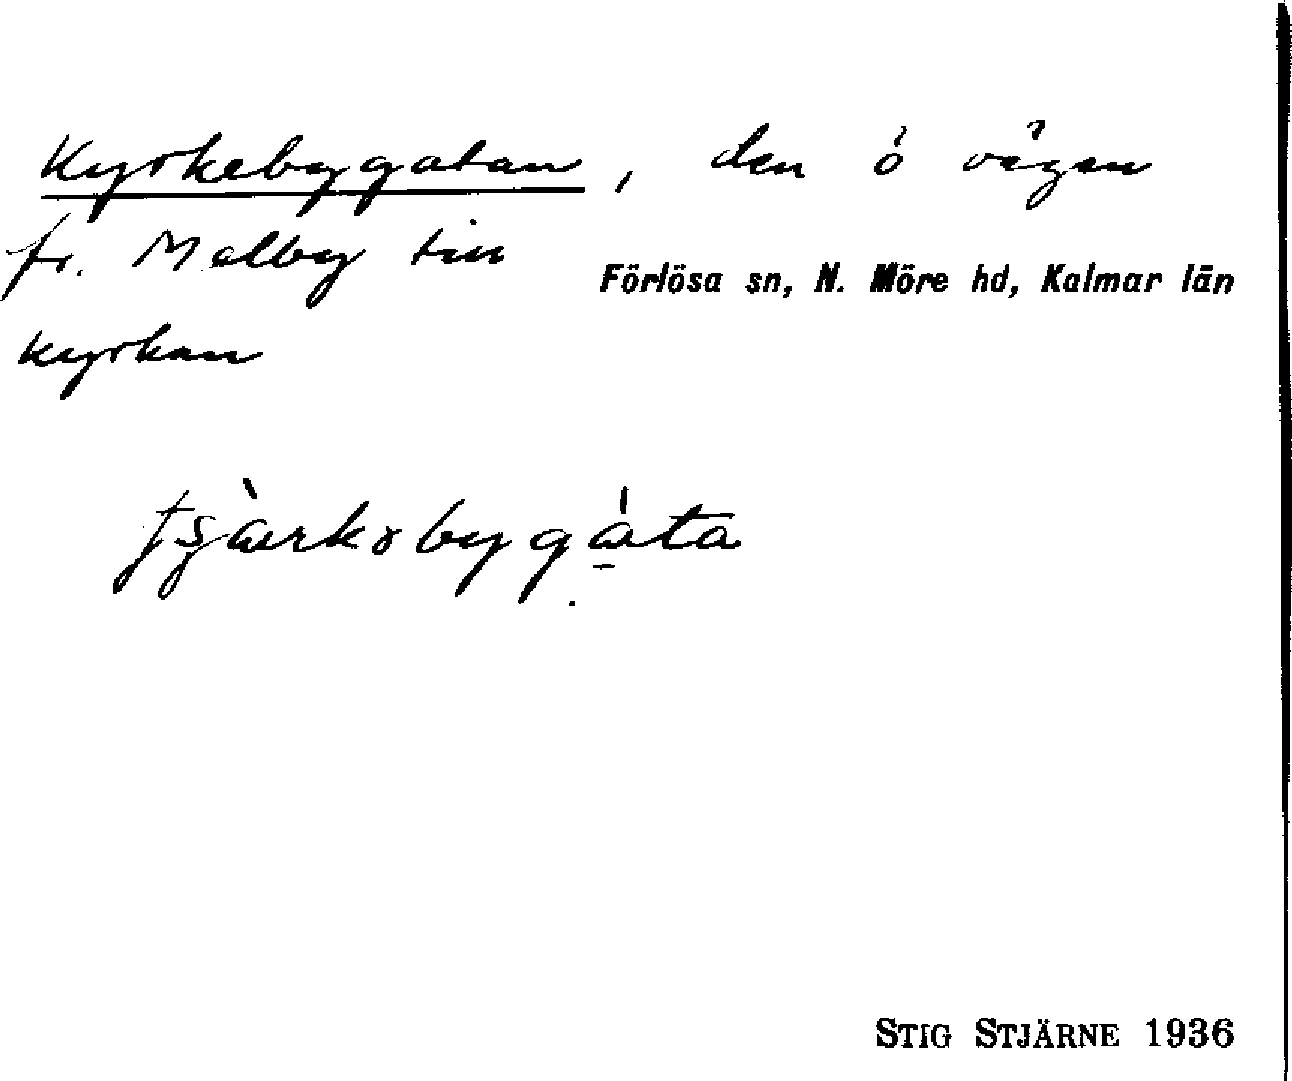 Kyrkebygatan, den ö vägen
fr. Malby till
Förlösa sn, N. Möre hd, Kalmar län
kyrkan
STIG STJÄRNE 1936